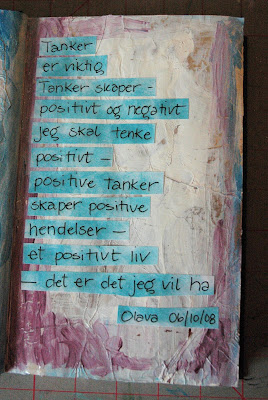 Tanker
er viktig
Tanker skaper -
positivt og negativt
jeg skal tenke
positivt -
positive tanker
skaper positive
hendelser -
et positivt liv
- det er det jeg vil ha
Olava 06/10/08